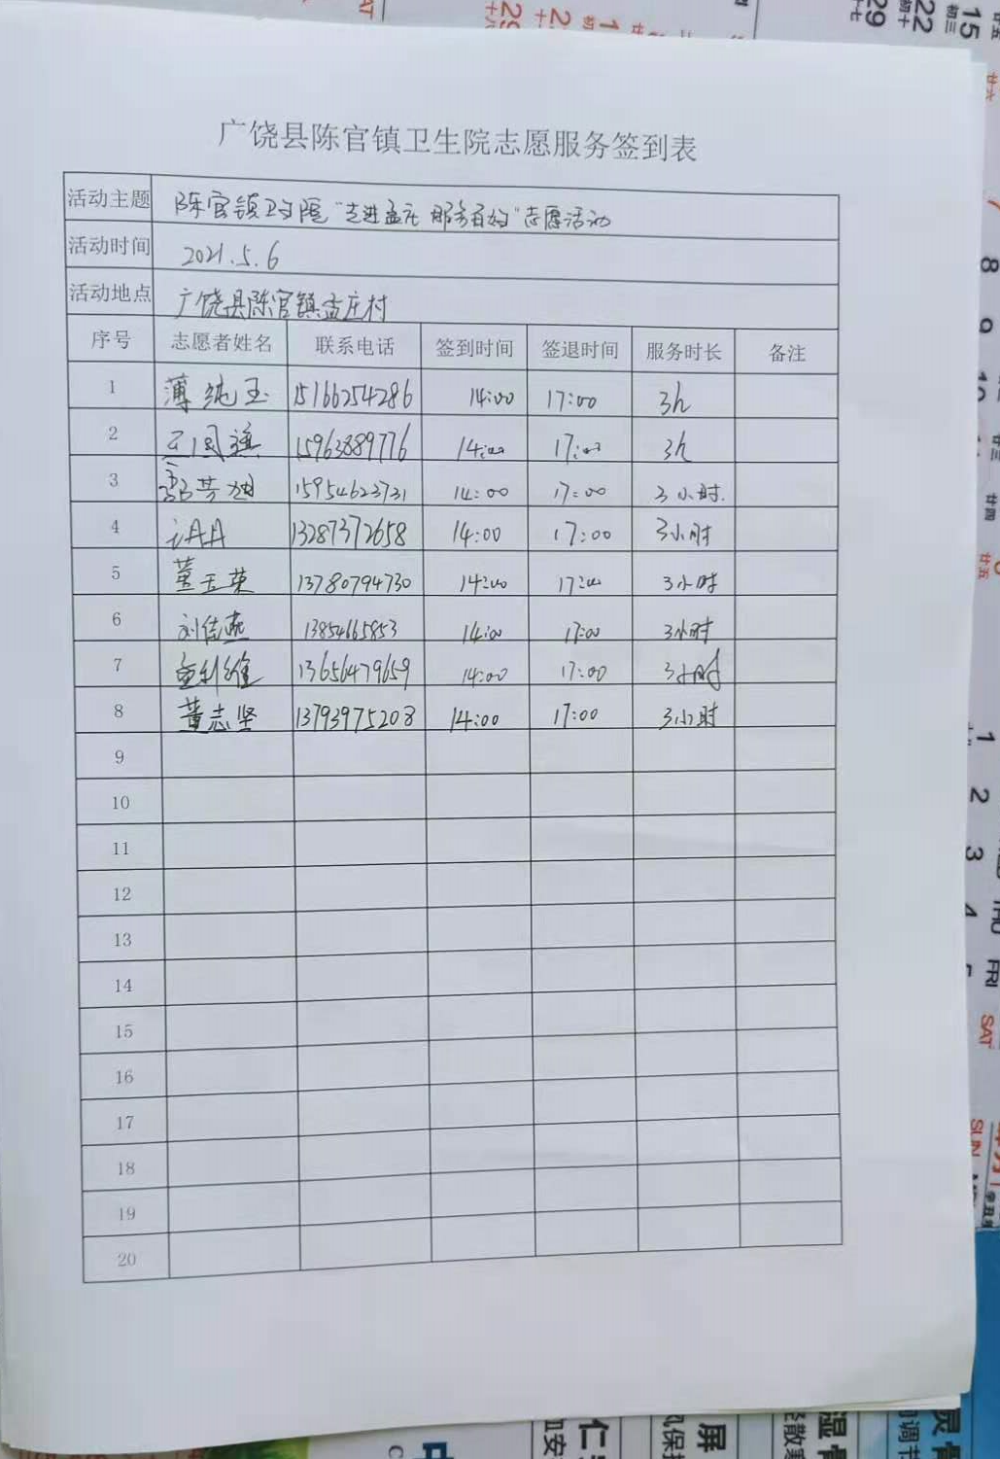 广饶县陈官镇卫生院志愿服务签到表
活动主题 陈官镇卫生院"走进孟庄 服务百姓"志愿活动
活动时间 2021.5.6
活动地点 广饶县陈官镇孟庄村
序号 志愿者姓名 联系电话 签到时间 签退时间 服务时长 备注
1 薄纯玉 15166254286 14:00 17:00 3h
2 15963889776 14:00 17:00 3h
3 15954623731 14:00 17:00 3小时.
4 13287372658 14:00 17:00 3小时
5 董玉荣 13780794730 14:00 17:00 3小时
6 刘佳燕 13854665853 14:00 17:00 3小时
7 13656479659 14:00 17:00 3小时
8 董志坚 13793975208 14:00 17:00 3小时
9
10
11
12
13
14
15
16
17
18
19
20
15
初三
22
初十
29
十七
8
9
10
1
2
3
4
THU
FRI
SAT
SUN
仁
屏
湿
灵
中